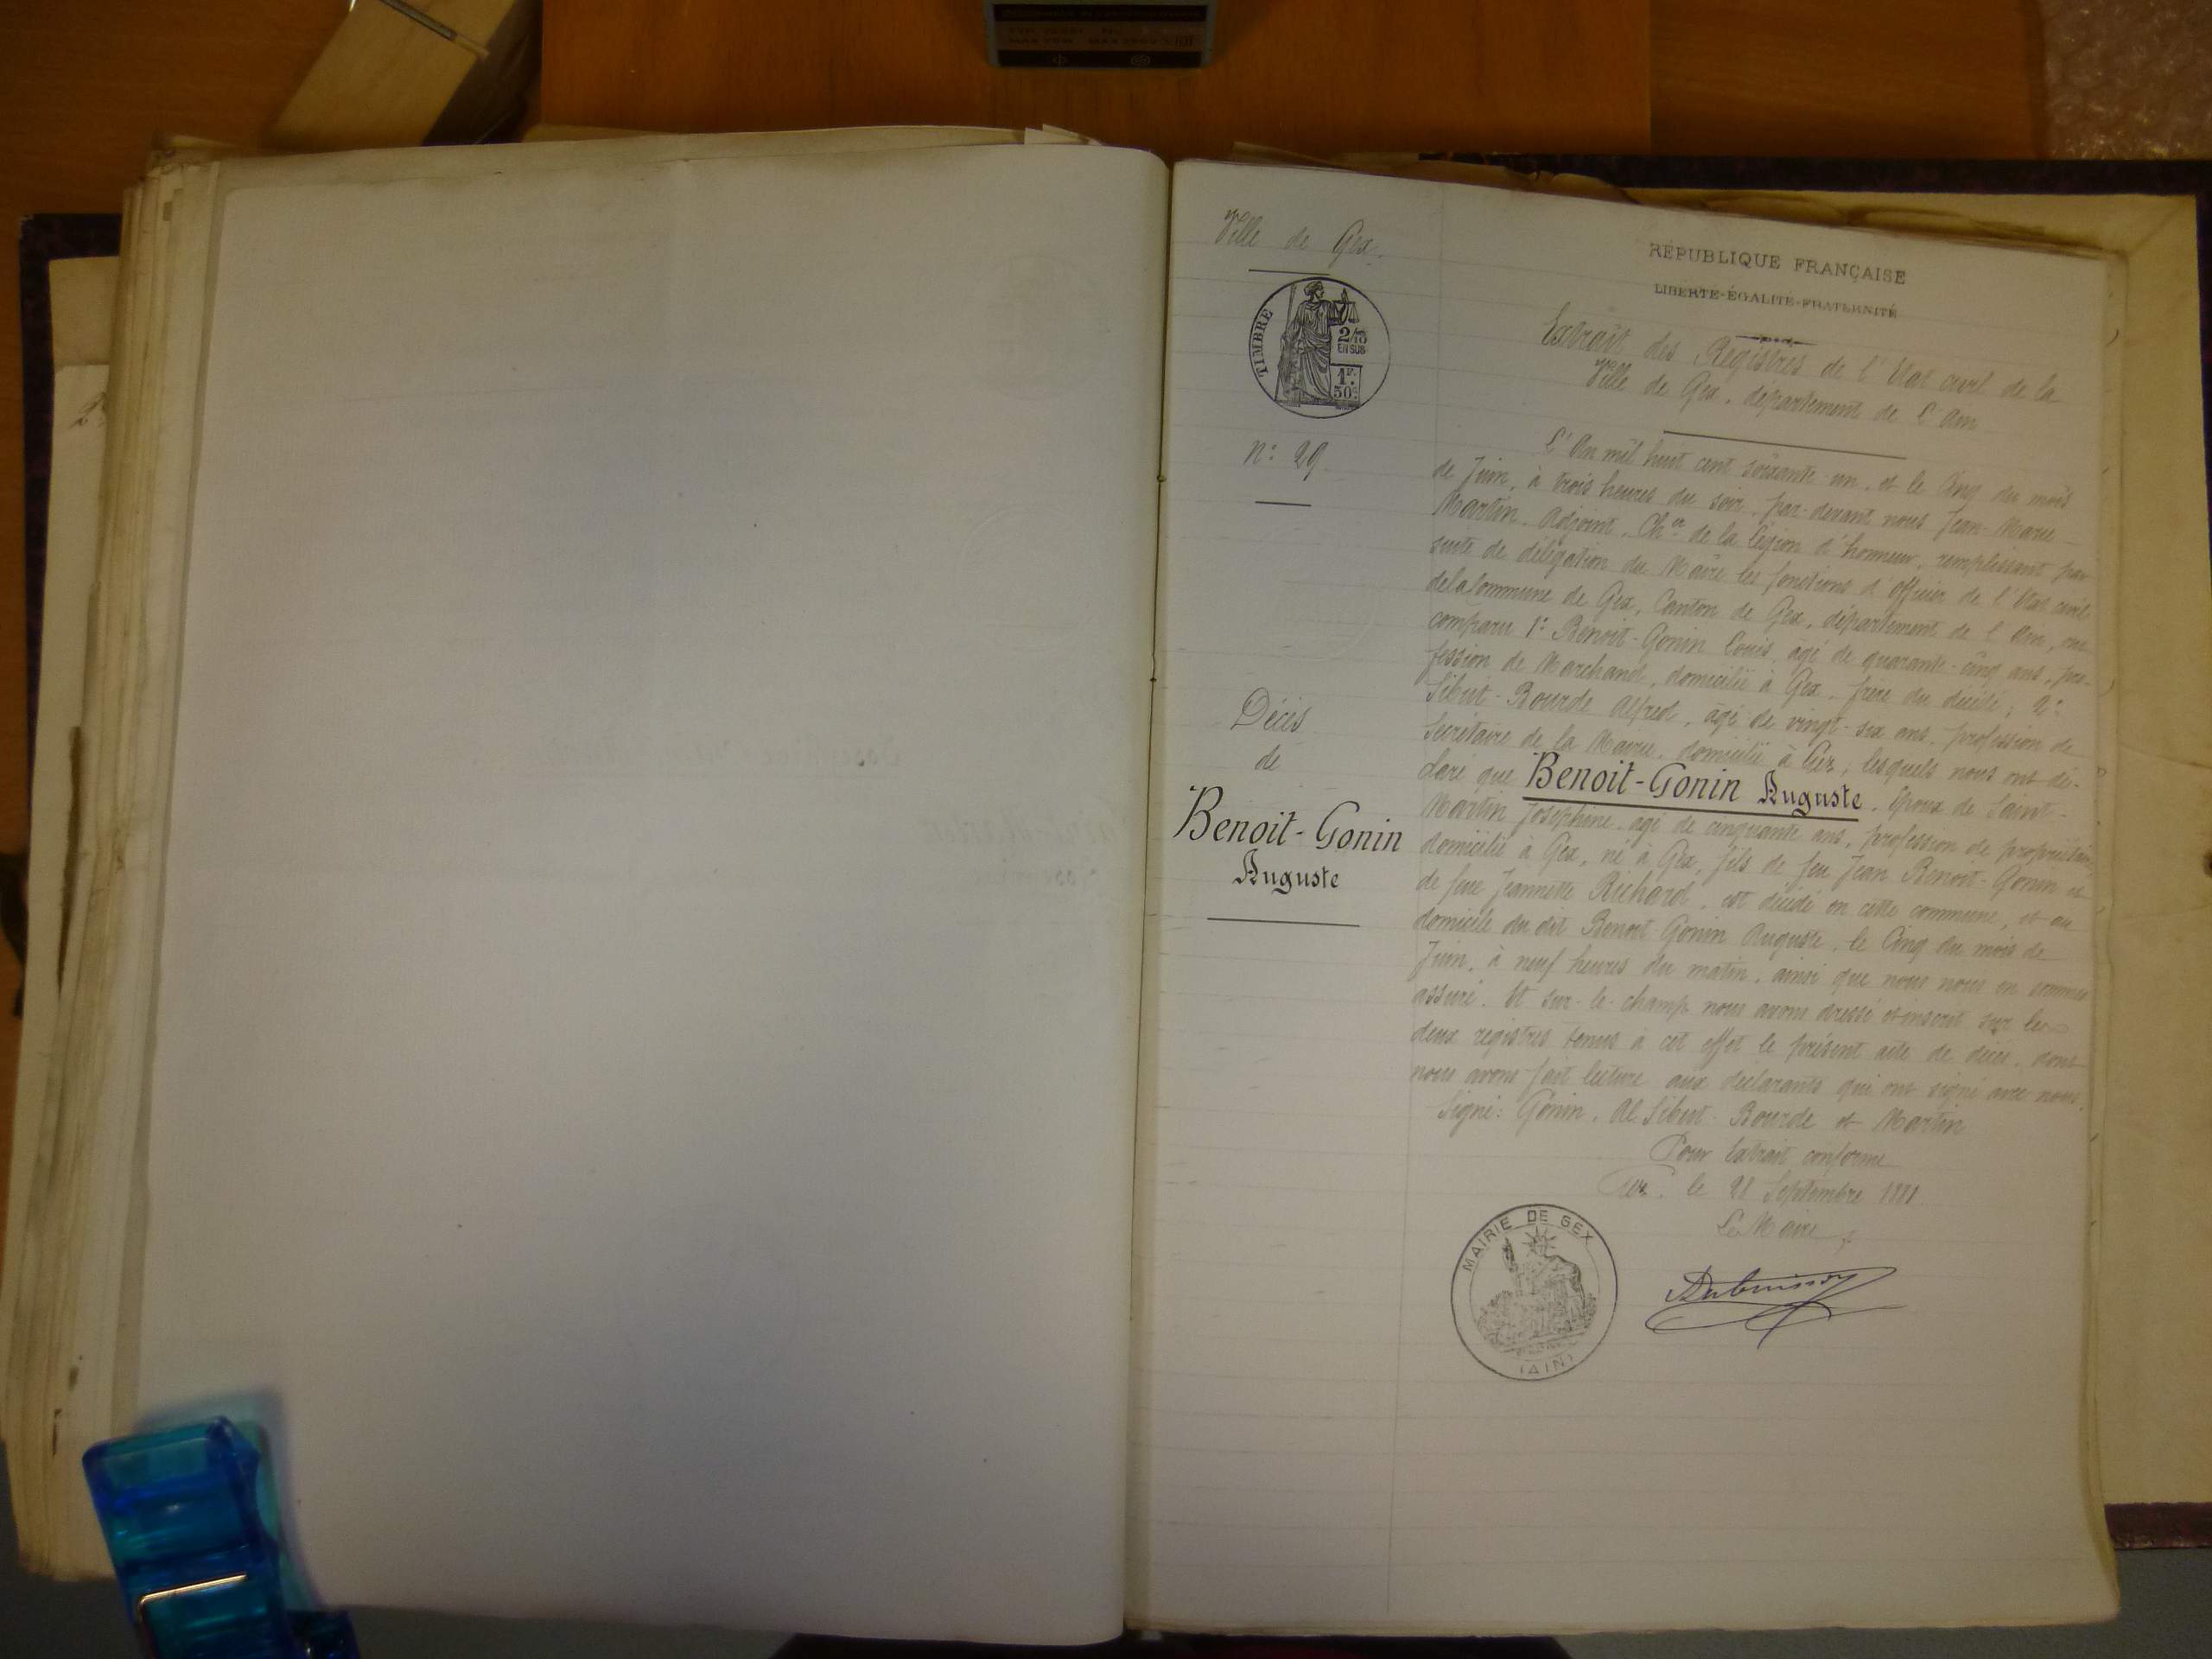 Ville de Gex.
TIMBRE
2/10
EN SUS
1F.
50c
n: 29
Décès
de
Benoit-Gonin
Auguste
RÉPUBLIQUE FRANÇAISE
LIBERTÉ-ÉGALITÉ-FRATERNITÉ
Extrait des Registres de l'Etat civil de la
Ville de Gex, département de l'Ain
L'An mil huit cent soixante-un, et le Cinq du mois
de Juin, à trois heures du soir, par-devant nous Jean-Marie
Martin, Adjoint, Cher de la légion d'honneur, remplissant par
suite de délégation du Maire les fonctions d'officier de l'Etat civil
de la Commune de Gex, Canton de Gex, département de l'Ain, ont
comparu 1: Benoit-Gonin Louis, âgé de quarante-cinq ans, pro-
fession de Marchand, domicilié à Gex, frère du décédé; 2:
Sibut-Bourde Alfred, âgé de vingt-six ans, profession de
Secrétaire de la Mairie, domicilié à Gex; lesquels nous ont dé-
claré que Benoit-Gonin Auguste, Epoux de Saint-
Martin Joséphine, âgé de cinquante ans, profession de propriétaire,
domicilié à Gex, né à Gex, fils de feu Jean Benoit-Gonin et
de feue Jeannette Richard, est décédé en cette commune, et au
domicile du dit Benoit-Gonin Auguste, le Cinq du mois de
Juin, à neuf heures du matin, ainsi que nous nous en sommes
assuré. Et sur-le-champ nous avons dressé et inscrit sur les
deux registres tenus à cet effet le présent acte de décès, dont
nous avons fait lecture aux déclarants qui ont signé avec nous.
Signé: Gonin, Al. Sibut-Bourde et Martin
Pour Extrait conforme
Gex, le 21 Septembre 1881
Le Maire,
MAIRIE DE GEX
(AIN)